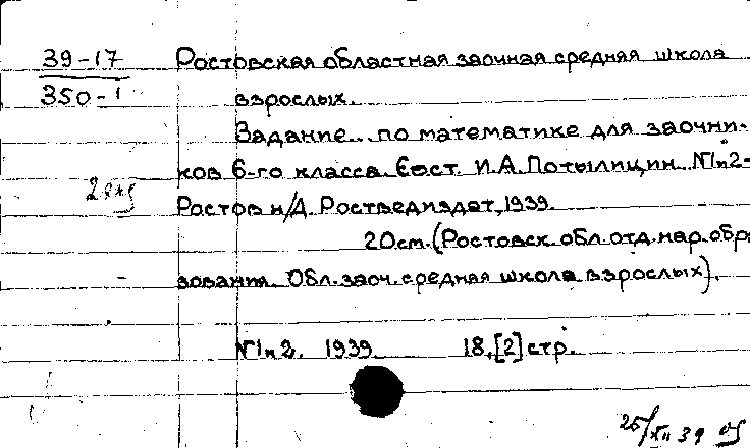 39-17
350-1
Ростовская областная заочная средняя школа
взрослых.
Задание... по математике для заочни-
ков 6-го класса. Сост. И.А. Потылицин. №1и2-
2 экз
Ростов н/Д. Роствединздат, 1939.
20см. (Ростовск. обл. отд. нар. обра
зования. Обл. заоч. средняя школа взрослых).
№1и2. 1939 18,[2] стр.
25/XII 39